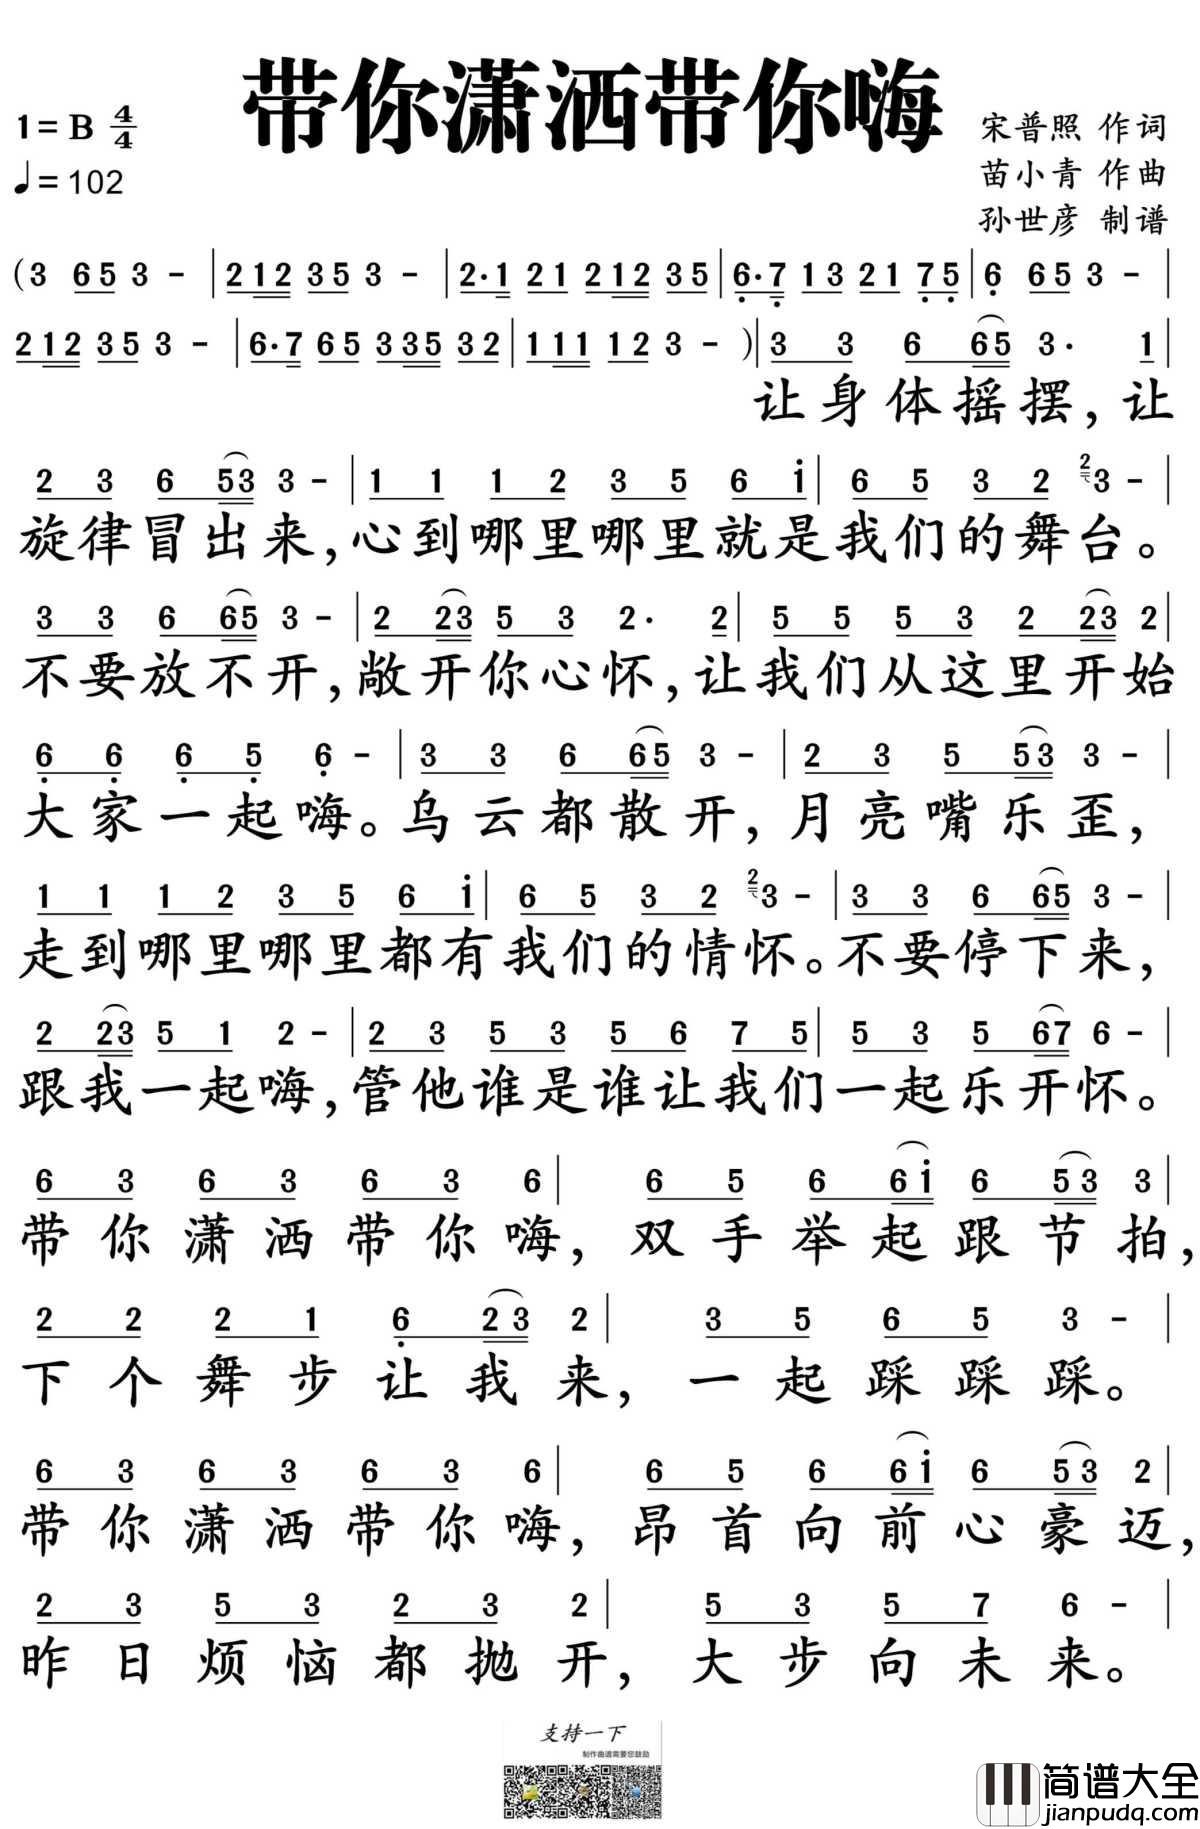 带你潇洒带你嗨
1=B 4/4
宋普照 作词
♩=102
苗小青 作曲
孙世彦 制谱
(3 65 3 - | 212 35 3 - | 2·1 21 212 35 | 6̣·7̣ 13 21 7̣5̣ | 6̣ 65 3 - |
212 35 3 - | 6·7 65 335 32 | 111 12 3 - )| 3 3 6 65 3· 1 |
让身体摇摆,让
2 3 6 53 3 - | 1 1 1 2 3 5 6 i | 6 5 3 2 ²3 - |
旋律冒出来,心到哪里哪里就是我们的舞台。
3 3 6 65 3 - | 2 23 5 3 2· 2 | 5 5 5 3 2 23 2 |
不要放不开,敞开你心怀,让我们从这里开始
6̣ 6̣ 6̣ 5̣ 6̣ - | 3 3 6 65 3 - | 2 3 5 53 3 - |
大家一起嗨。乌云都散开,月亮嘴乐歪,
1 1 1 2 3 5 6 i | 6 5 3 2 ²3 - | 3 3 6 65 3 - |
走到哪里哪里都有我们的情怀。不要停下来,
2 23 5 1 2 - | 2 3 5 3 5 6 7 5 | 5 3 5 67 6 - |
跟我一起嗨,管他谁是谁让我们一起乐开怀。
6 3 6 3 6 3 6 | 6 5 6 6i 6 53 3 |
带你潇洒带你嗨,双手举起跟节拍,
2 2 2 1 6̣ 23 2 | 3 5 6 5 3 - |
下个舞步让我来,一起踩踩踩。
6 3 6 3 6 3 6 | 6 5 6 6i 6 53 2 |
带你潇洒带你嗨,昂首向前心豪迈,
2 3 5 3 2 3 2 | 5 3 5 7 6 - |
昨日烦恼都抛开,大步向未来。
支持一下
制作曲谱需要您鼓励
简谱大全
jianpudq.com